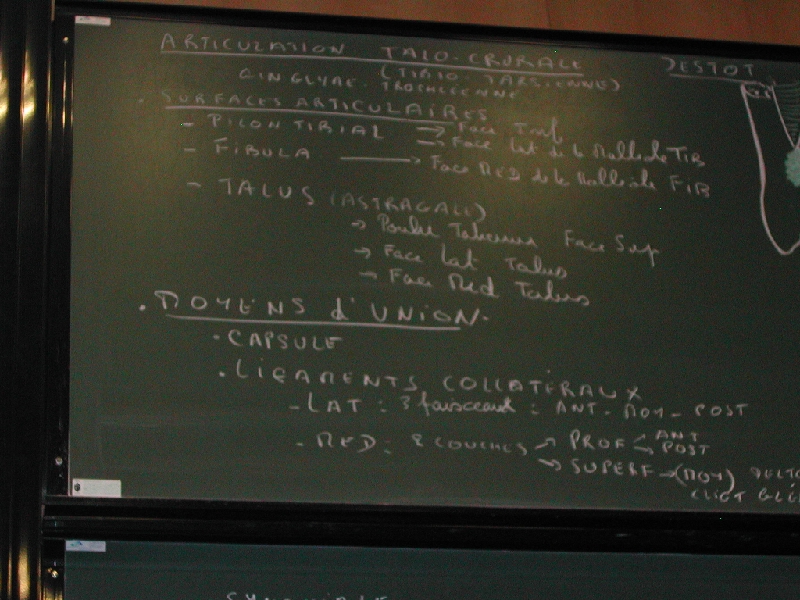 ARTICULATION TALO-CRURALE
(TIBIO-TARSIENNE)
GINGLYME - TROCHLEENNE
DESTOT
. SURFACES ARTICULAIRES
- PILON TIBIAL → Face Inf
→ Face Lat de la Malléole TIB
- FIBULA → Face MED de la Malléole FIB
- TALUS (ASTRAGALE)
→ Poulie Talienne Face Sup
→ Face Lat Talus
→ Face Med Talus
. MOYENS d'UNION.
. CAPSULE
. LIGAMENTS COLLATÉRAUX
- LAT : 3 faisceaux : ANT - MOY - POST
- MED : 2 COUCHES → PROF → ANT
→ POST
→ SUPERF → (MOY)